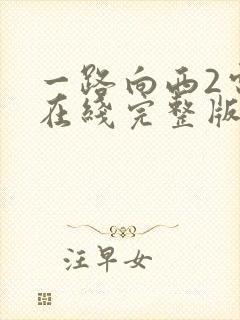 一路向西2
在线完整版
汪早女